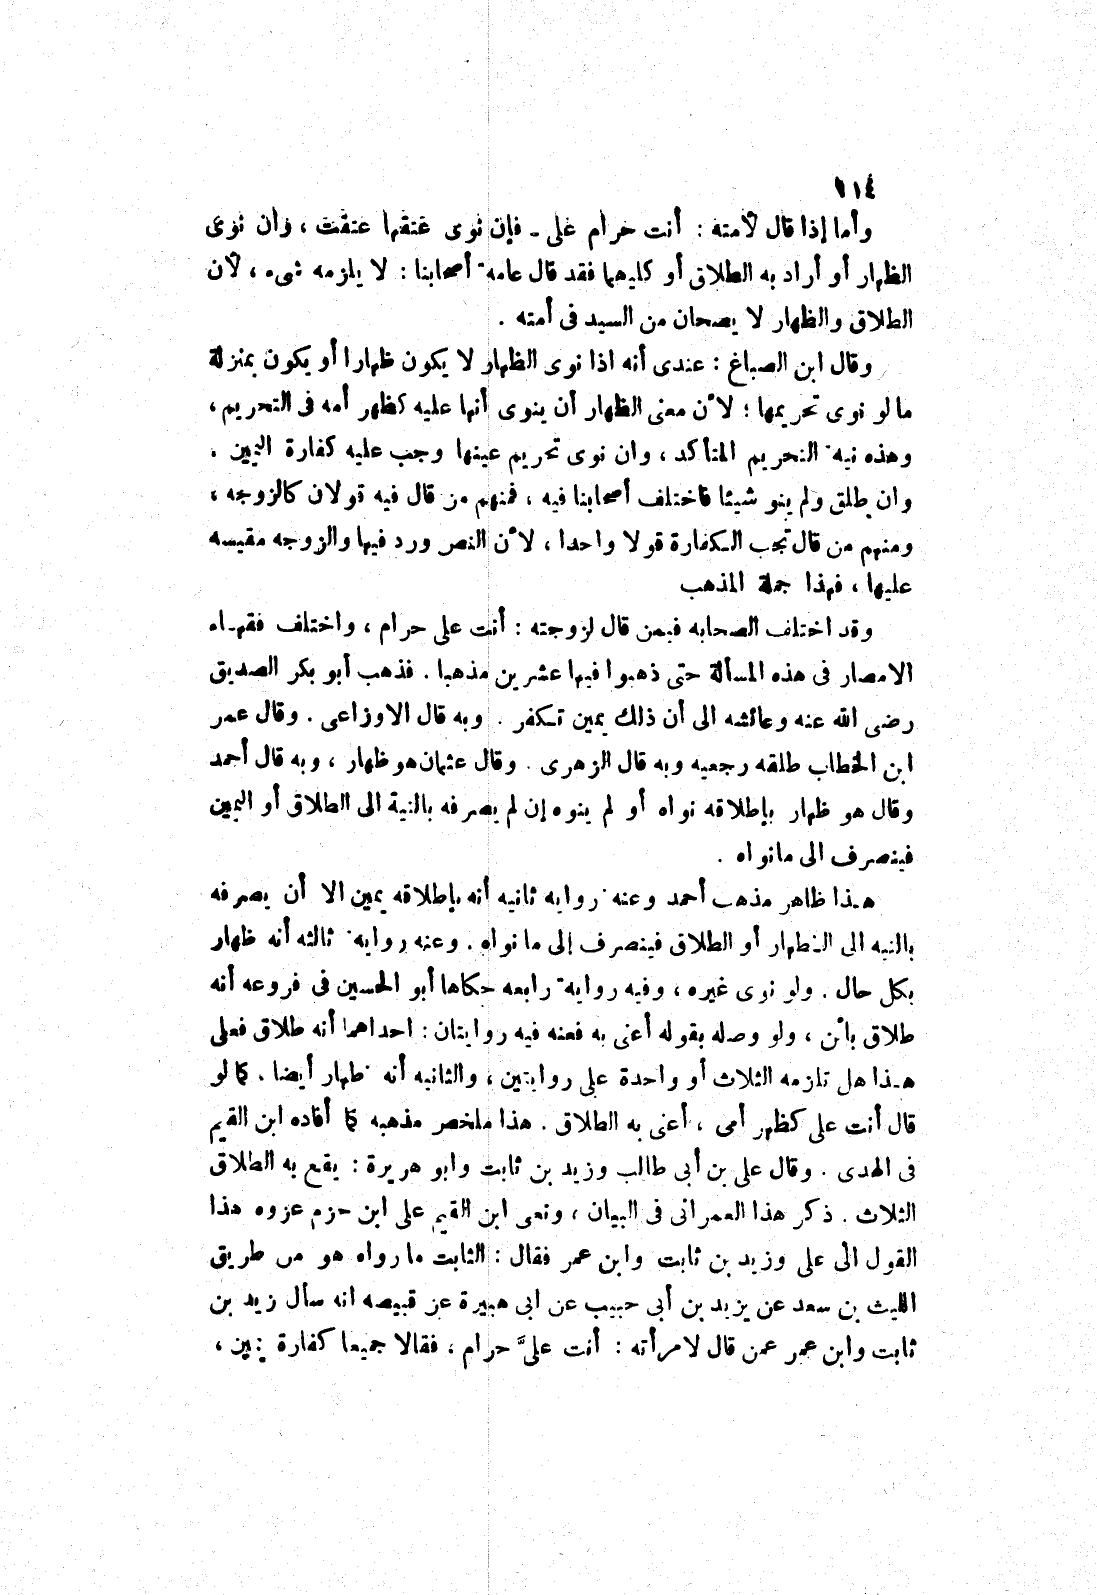 ١١٤
وأما إذا قال لأمته : أنت حرام على ـ فإن نوى عتقها عتقت ، وان نوى
الظهار أو أراد به الطلاق أو كليهما فقد قال عامه أصحابنا : لا يلزمه شىء ، لأن
الطلاق والظهار لا يصحان من السيد فى أمته .
وقال ابن الصباغ : عندى أنه اذا نوى الظهار لا يكون ظهارا أو يكون بمنزلة
ما لو نوى تحريمها ؛ لأن معنى الظهار أن ينوى أنها عليه كظهر أمه فى التحريم ،
وهذه نيه التحريم المتأكد ، وان نوى تحريم عينها وجب عليه كفارة اليمين .
وان طلق ولم ينو شيئا فاختلف أصحابنا فيه ، فمنهم من قال فيه قولان كالزوجه ،
ومنهم من قال تجب الكفارة قولا واحدا ، لأن النص ورد فيها والزوجه مقيسه
عليها ، فهذا جملة المذهب
وقد اختلف الصحابه فيمن قال لزوجته : أنت على حرام ، واختلف فقهاء
الامصار فى هذه المسألة حتى ذهبوا فيها عشرين مذهبا . فذهب أبو بكر الصديق
رضى الله عنه وعائشه الى أن ذلك يمين تكفر . وبه قال الاوزاعى . وقال عمر
ابن الخطاب طلقه رجعيه وبه قال الزهرى . وقال عثمان هو ظهار ، وبه قال أحمد
وقال هو ظهار بإطلاقه نواه أو لم ينوه إن لم يصرفه بالنية الى الطلاق أو اليمين
فينصرف الى مانواه .
هـذا ظاهر مذهب أحمد وعنه روايه ثانيه أنه بإطلاقه يمين الا أن يصرفه
بالنيه الى الظهار أو الطلاق فينصرف إلى ما نواه . وعنه روايه ثالثه أنه ظهار
بكل حال . ولو نوى غيره ، وفيه روايه رابعه حكاها أبو الحسين فى فروعه أنه
طلاق بائن ، ولو وصله بقوله أعنى به فعنه فيه روايتان : احداهما أنه طلاق فعلى
هـذا هل تلزمه الثلاث أو واحدة على روايتين ، والثانيه أنه ظهار أيضا . كما لو
قال أنت على كظهر أمى ، أعنى به الطلاق . هذا ملخص مذهبه كما أفاده ابن القيم
فى الهدى . وقال على بن أبى طالب وزيد بن ثابت وابو هريرة : يقع به الطلاق
الثلاث . ذكر هذا العمرانى فى البيان ، ونعى ابن القيم على ابن حزم عزوه هذا
القول الى على وزيد بن ثابت وابن عمر فقال : الثابت ما رواه هو من طريق
الليث بن سعد عن يزيد بن أبى حبيب عن ابى هبيرة عن قبيصه انه سأل زيد بن
ثابت وابن عمر عمن قال لامرأته : أنت علىَّ حرام ، فقالا جميعا كفارة يمين ،